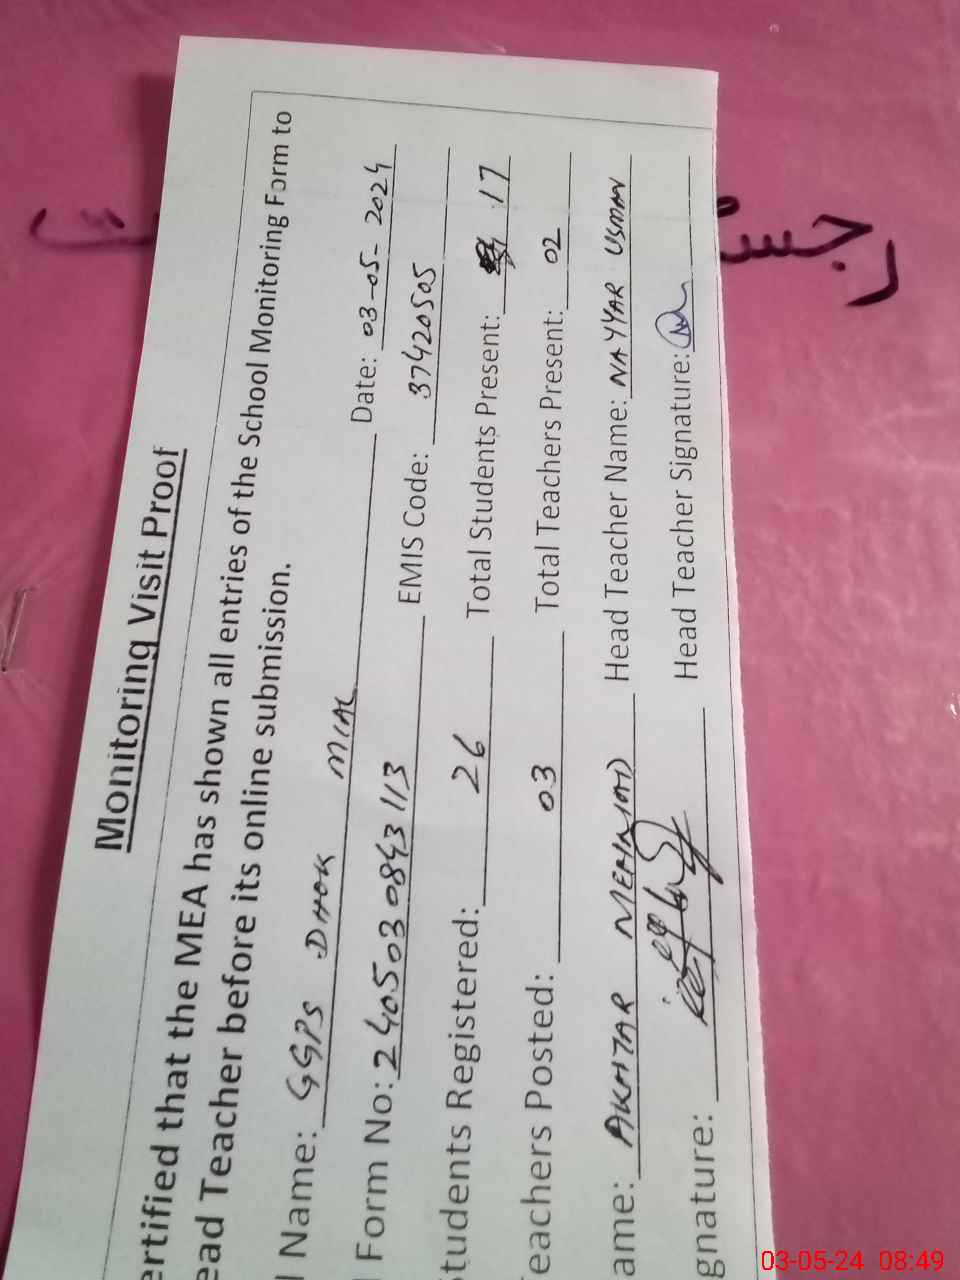 Monitoring Visit Proof
ertified that the MEA has shown all entries of the School Monitoring Form to
ead Teacher before its online submission.
l Name: GGPS DHOK MIAL Date: 03-05-2024
l Form No: 240503 0843 113 EMIS Code: 37420505
Students Registered: 26 Total Students Present: 17
Teachers Posted: 03 Total Teachers Present: 02
ame: AKHTAR MEHMOOD Head Teacher Name: NAYYAR USMAN
gnature: Head Teacher Signature:
رجس
03-05-24 08:49